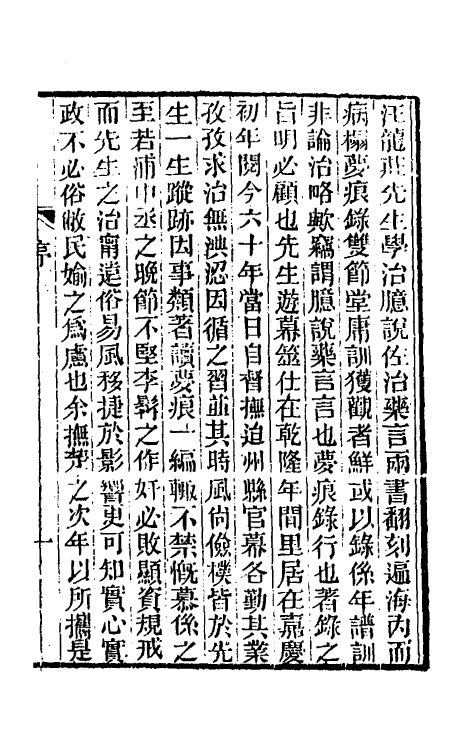 汪龍莊先生學治臆說佐治藥言兩書翻刻遍海內而
病榻夢痕錄雙節堂庸訓獲觀者鮮或以錄係年譜訓
非論治略歟竊謂臆說藥言言也夢痕錄行也著錄之
旨明必顧也先生遊幕筮仕在乾隆年間里居在嘉慶
初年閱今六十年當日自督撫迨州縣官幕各勤其業
孜孜求治無淟涊因循之習並其時風尚儉樸皆於先
生一生蹤跡因事類著讀夢痕一編輙不禁慨慕係之
至若浦中丞之晚節不堅李髥之作奸必敗顯資規戒
而先生之治甯遠俗易風移捷於影響更可知實心實
政不必俗敝民媮之爲慮也余撫楚之次年以所攜是
序
一